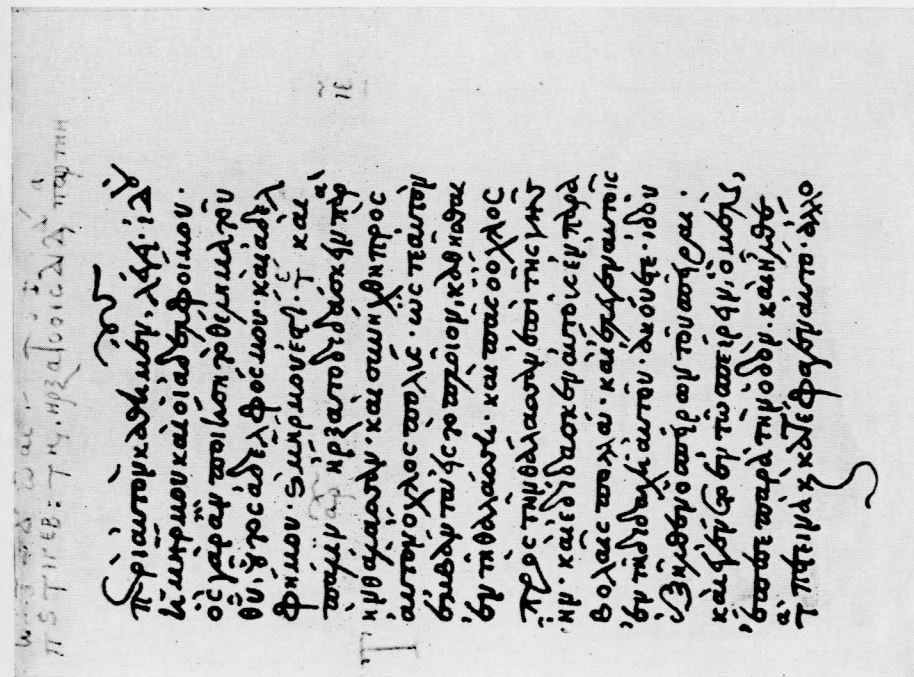 περὶ αὐτὸν καθημένους, λέγει· ἰδοὺ
ἡ μήτηρ μου καὶ οἱ ἀδελφοί μου.
ὃς γὰρ ἂν ποιήσῃ τὸ θέλημα τοῦ
θυ, οὗτος ἀδελφός μου καὶ ἀδελ
φή μου. καὶ μηρ μου ἐστί. καὶ
πάλιν ἤρξατο διδάσκειν παρὰ
τὴν θάλασσαν· καὶ συνήχθη πρὸς
αὐτὸν ὄχλος πολύς· ὥστε αὐτὸν
ἐμβάντα εἰς τὸ πλοῖον καθῆσθαι
ἐν τῇ θαλάσσῃ· καὶ πᾶς ὁ ὄχλος
πρὸς τὴν θάλασσαν ἐπὶ τῆς γῆς
ἦν· καὶ ἐδίδασκεν αὐτοὺς ἐν παρα
βολαῖς πολλά· καὶ ἔλεγεν αὐτοῖς
ἐν τῇ διδαχῇ αὐτοῦ· ἀκούετε· ἰδοὺ
ἐξῆλθεν ὁ σπείρων τοῦ σπεῖραι.
καὶ ἐγένετο ἐν τῷ σπείρειν, ὃ μὲν,
ἔπεσε παρὰ τὴν ὁδόν· καὶ ἦλθε
τὰ πετεινὰ καὶ κατέφαγεν αὐτό· ἄλλο